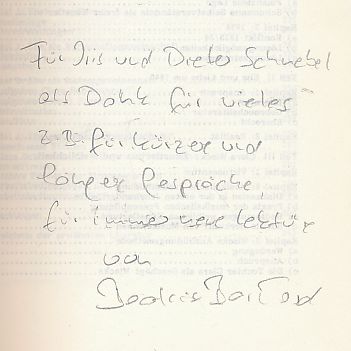 Für Iris und Dieter Schnebel
als Dank für vieles
z.B. für kürzere und
längere Gespräche,
für immer neue Lektüre
von
Beatrix Borchard